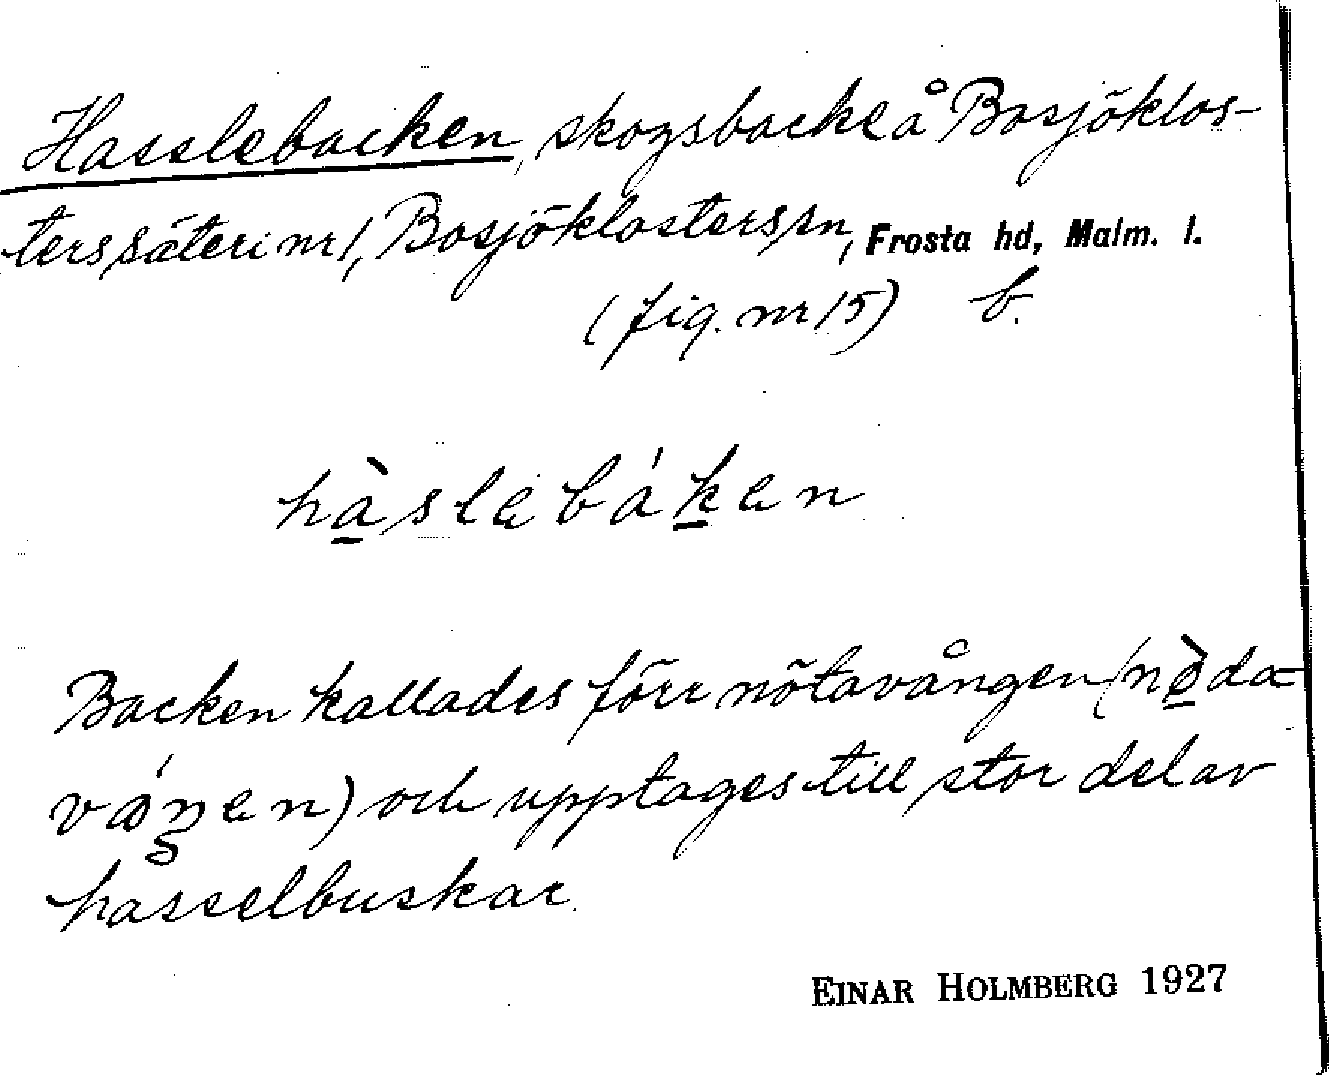 Hasslebacken, skogsbacke å Bosjöklos-
ters säteri nr 1, Bosjöklosters sn, Frosta hd, Malm. l.
(fig. nr 15) b.
hàslebáken
Backen kallades förr nötavången (nøda-
våŋen) och upptages till stor del av
hasselbuskar.
EINAR HOLMBERG 1927